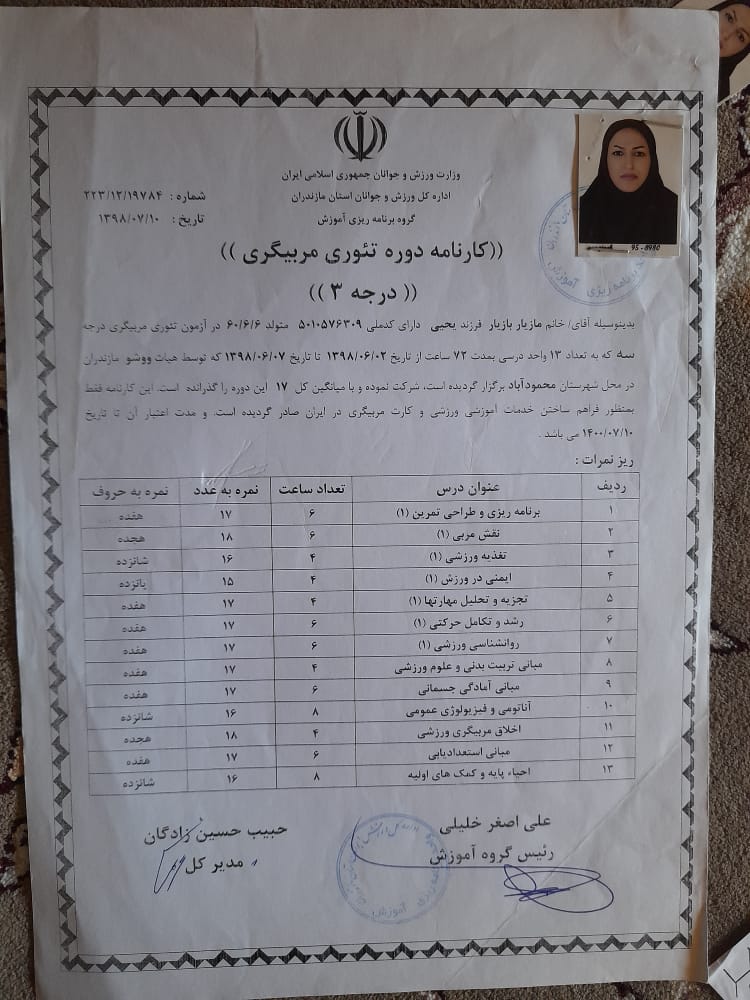 وزارت ورزش و جوانان جمهوری اسلامی ایران
اداره کل ورزش و جوانان استان مازندران
گروه برنامه ریزی آموزش
شماره : ۲۲۳/۱۲/۱۹۷۸۴
تاریخ : ۱۳۹۸/۰۷/۱۰
95-8980
((کارنامه دوره تئوری مربیگری ))
(( درجه ۳ ))
بدینوسیله آقای/ خانم مازیار بازیار فرزند یحیی دارای کدملی ۵۰۱۰۵۷۶۳۰۹ متولد ۶۰/۶/۶ در آزمون تئوری مربیگری درجه
سه که به تعداد ۱۳ واحد درسی بمدت ۷۲ ساعت از تاریخ ۱۳۹۸/۰۶/۰۲ تا تاریخ ۱۳۹۸/۰۶/۰۷ که توسط هیات ووشو مازندران
در محل شهرستان محمودآباد برگزار گردیده است، شرکت نموده و با میانگین کل ۱۷ این دوره را گذرانده است. این کارنامه فقط
بمنظور فراهم ساختن خدمات آموزشی ورزشی و کارت مربیگری در ایران صادر گردیده است. و مدت اعتبار آن تا تاریخ
۱۴۰۰/۰۷/۱۰ می باشد .
ریز نمرات :
ردیف عنوان درس تعداد ساعت نمره به عدد نمره به حروف
۱ برنامه ریزی و طراحی تمرین (۱) ۶ ۱۷ هفده
۲ نقش مربی (۱) ۶ ۱۸ هجده
۳ تغذیه ورزشی (۱) ۴ ۱۶ شانزده
۴ ایمنی در ورزش (۱) ۴ ۱۵ پانزده
۵ تجزیه و تحلیل مهارتها (۱) ۴ ۱۷ هفده
۶ رشد و تکامل حرکتی (۱) ۶ ۱۷ هفده
۷ روانشناسی ورزشی (۱) ۶ ۱۷ هفده
۸ مبانی تربیت بدنی و علوم ورزشی ۴ ۱۷ هفده
۹ مبانی آمادگی جسمانی ۶ ۱۷ هفده
۱۰ آناتومی و فیزیولوژی عمومی ۸ ۱۶ شانزده
۱۱ اخلاق مربیگری ورزشی ۴ ۱۸ هجده
۱۲ مبانی استعدادیابی ۶ ۱۷ هفده
۱۳ احیاء پایه و کمک های اولیه ۸ ۱۶ شانزده
علی اصغر خلیلی
رئیس گروه آموزش
حبیب حسین زادگان
مدیر کل